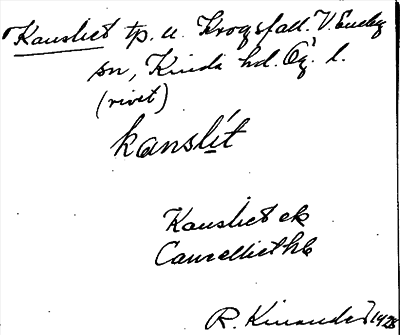 Kansliet tp. u. Krogsfall. V. Eneby
sn, Kinda hd. Ög. l.
(rivet)
kanslít
Kansliet ek
Cancelliet hb
R. Kinander 1928